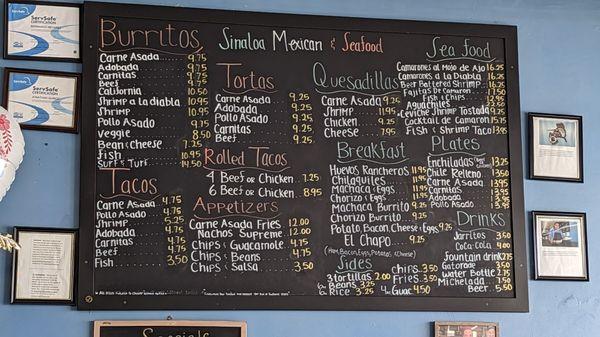 ServSafe
CERTIFICATION
ServSafe
CERTIFICATION
Sinaloa Mexican & Seafood
Burritos
Carne Asada 9.75
Adobada 9.75
Carnitas 9.75
Beef 9.75
California 10.50
Shrimp a la diabla 10.95
Shrimp 10.95
Pollo Asado 9.75
Veggie 8.50
Bean & Cheese 7.25
Fish 10.95
Surf & Turf 14.50
Tacos
Carne Asada 4.75
Pollo Asado 4.75
Shrimp 5.25
Adobada 4.75
Carnitas 4.75
Beef 4.75
Fish 3.50
Tortas
Carne Asada 9.25
Adobada 9.25
Pollo Asado 9.25
Carnitas 9.25
Beef 9.25
Rolled Tacos
4 Beef or Chicken 7.25
6 Beef or Chicken 8.95
Appetizers
Carne Asada Fries 12.00
Nachos Supreme 12.00
Chips & Guacamole 4.75
Chips & Beans 4.75
Chips & Salsa 3.50
Quesadillas
Carne Asada 9.25
Shrimp 11.95
Chicken 9.25
Cheese 7.95
Breakfast
Huevos Rancheros 11.95
Chilaquiles 11.95
Machaca & Eggs 11.95
Chorizo & Eggs 11.95
Machaca Burrito 9.25
Chorizo Burrito 9.25
Potato, Bacon, Cheese & Eggs 9.25
El Chapo 9.25
(Ham, Bacon, Eggs, Potatoes, & Cheese)
Sides
3 tortillas 2.00
Beans 3.25
Rice 3.25
chips 3.50
Fries 3.50
Guac 4.50
Sea food
Camarones al Mojo de Ajo 16.25
Camarones a la Diabla 16.25
Beer Battered Shrimp 16.25
Fajitas De Camaron 17.50
Fish & Chips
Aguachiles
Ceviche Shrimp Tostada 9.25
Cocktail de Camaron 15.75
Fish & Shrimp Taco
Plates
Enchiladas 13.25
Chile Relleno 13.50
Carne Asada 13.95
Carnitas 13.95
Adobada 13.95
Pollo Asado 13.95
Drinks
Jarritos 3.50
Coca-Cola 4.00
Fountain drink 2.75
Gatorade 3.50
Water Bottle 2.75
Michelada 7.50
Beer 5.50
Specials